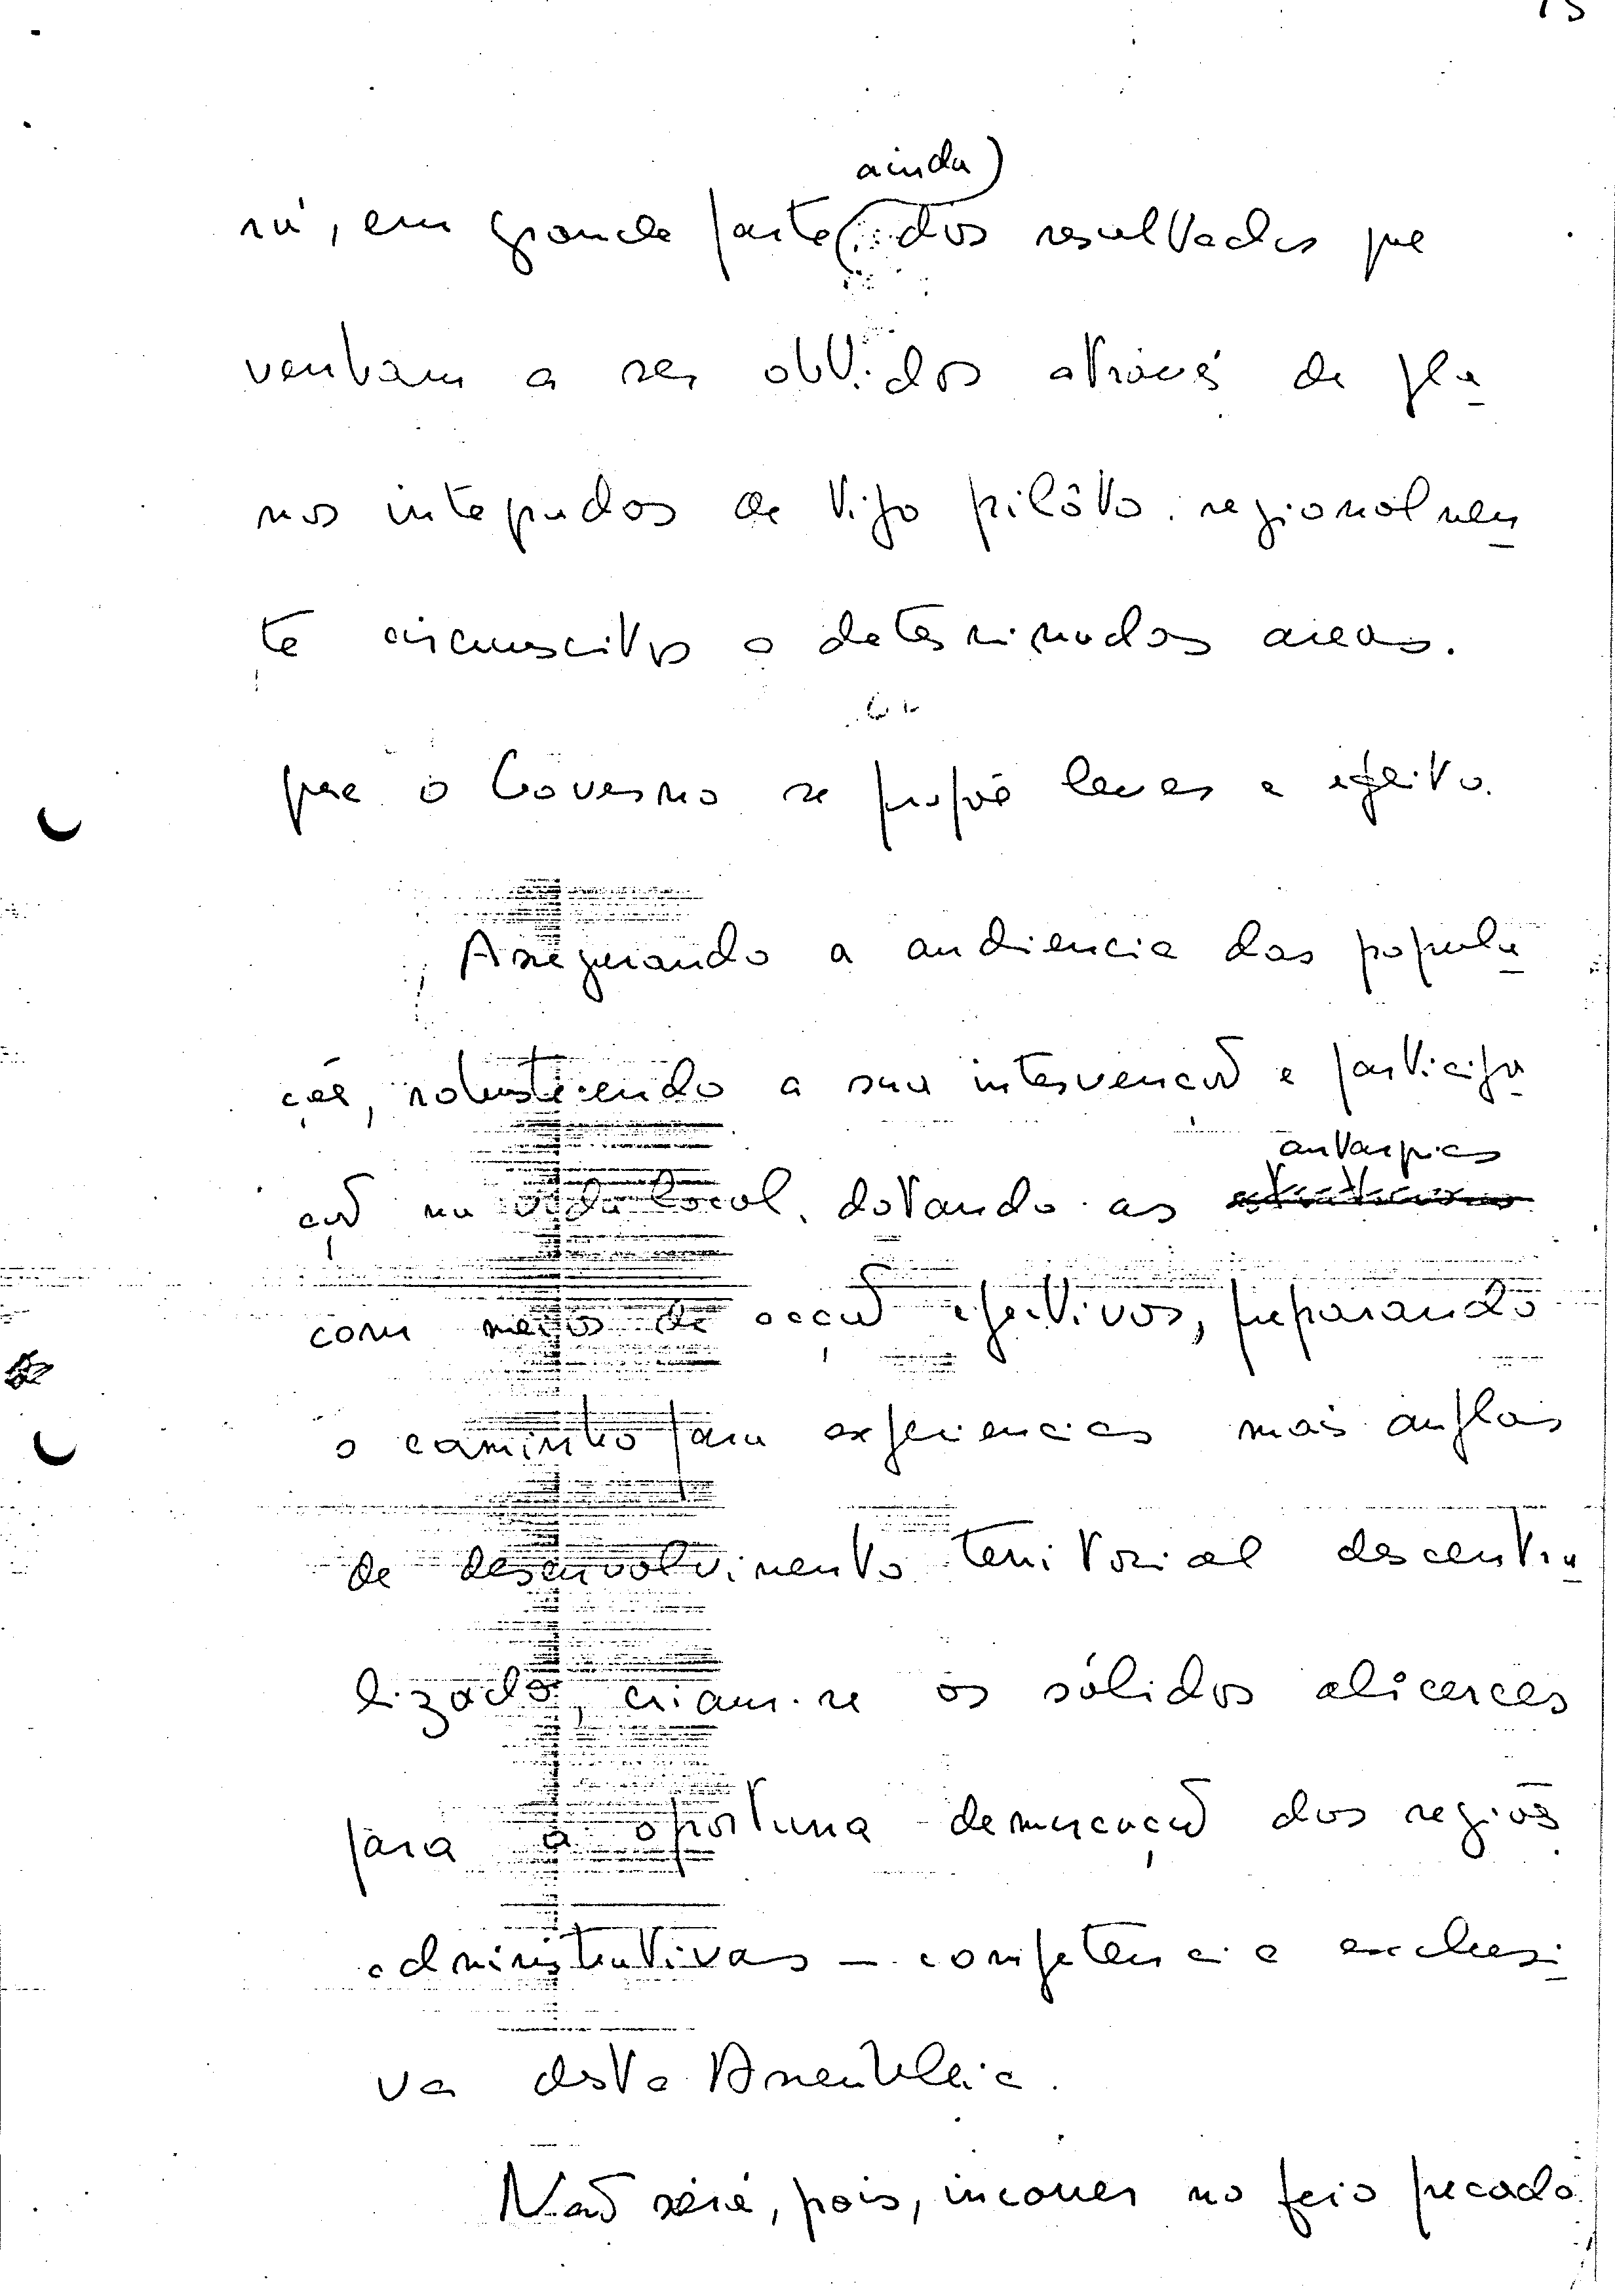 15
ainda)
rá, em grande parte dos resultados que
venham a ser obtidos através de pla_
nos integrados de tipo pilôto. regionalmen_
te circunscritos a determinadas areas.
que o Governo se propõe levar a efeito.
Assegurando a audiencia das popula_
ções, robustecendo a sua intervenção e participa_
autarquias
ção na vida local, dotando as
com meios de acção efectivos, preparando
o caminho para experiencias mais amplas
de desenvolvimento territorial descentra_
lizado, criam-se os sólidos alicerces
para a oportuna demarcação das regiões
administrativas - competencia exclusi_
va desta Assembleia.
Não será, pois, incorrer no feio pecado